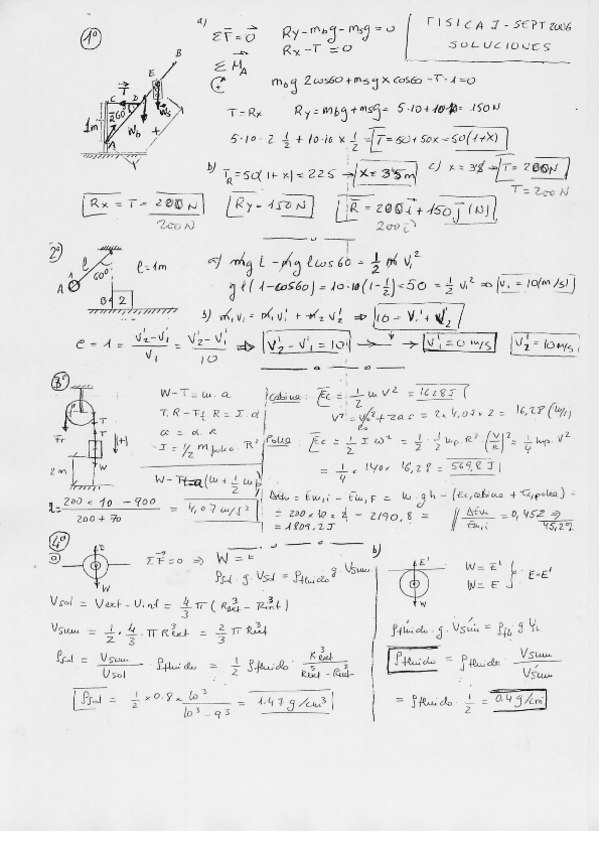 FISICA I - SEPT 2006
SOLUCIONES
1º
a) ΣF = 0 Ry - mbg - msg = 0
Rx - T = 0
Σ MA
mbg 2cos60 + msg x cos60 - T·1 = 0
T = Rx Ry = mbg + msg = 5·10 + 10·10 = 150N
5·10·2 1/2 + 10·10 x 1/2 = T = 50 + 50x = 50(1+x)
b) TR = 50(1+x) = 225 → x = 3'5m c) x = 3'8 → T = 200N
T = 200N
Rx = T = 200N Ry = 150N R = 200i + 150j (N)
200N 200i
A B C D E T Wb Ws 60º 1m x
2º
l 60º A 1 B 2 l = 1m
a) mgl - mgl cos60 = 1/2 m v1²
gl(1-cos60) = 10·10(1-1/2) = 50 = 1/2 v1² ⇒ v1 = 10(m/s)
b) m1v1 = m1v1' + m2v2' ⇒ 10 = v1' + v2'
e = 1 = (v2' - v1')/v1 = (v2' - v1')/10 ⇒ v2' - v1' = 10 → v1' = 0 m/s v2' = 10 m/s
3º
Fr T T W 2m (+)
W - T = m·a
T·R - Ff R = I·α
a = α·R
I = 1/2 mpolea R²
W - Ff = a(m + 1/2 mp)
a = (200×10 - 900)/(200+70) = 4,07 m/s²
Cabina: Ec = 1/2 m v² = 1628J
v² = v0² + 2as = 2×4,07×2 = 16,28 (m/s)
Polea: Ec = 1/2 I ω² = 1/2 · 1/2 mp R² (V/R)² = 1/4 mp·v²
= 1/4 × 140 × 16,28 = 569,8J
ΔEm = Em,i - Em,F = mgh - (Ec,cabina + Ec,polea) =
= 200×10×2 - 2190,8 = ΔEm/Em,i = 0,452 ⇒ 45,2%
= 1809,2J
4º
a) E W
ΣF = 0 ⇒ W = E
ρsol·g·Vsol = ρfluido·g·Vsum
Vsol = Vext - Vint = 4/3 π (Rext³ - Rint³)
Vsum = 1/2 · 4/3 · π Rext³ = 2/3 π Rext³
ρsol = Vsum/Vsol · ρfluido = 1/2 ρfluido · Rext³/(Rext³ - Rint³)
ρsol = 1/2 × 0.8 × 10³/(10³ - 9³) = 1.47 g/cm³
b) E' W
W = E'
W = E
E = E'
ρ'fluido·g·V'sum = ρfl·g·V
ρ'fluido = ρfluido · Vsum/V'sum
= ρfluido · 1/2 = 0.4 g/cm³